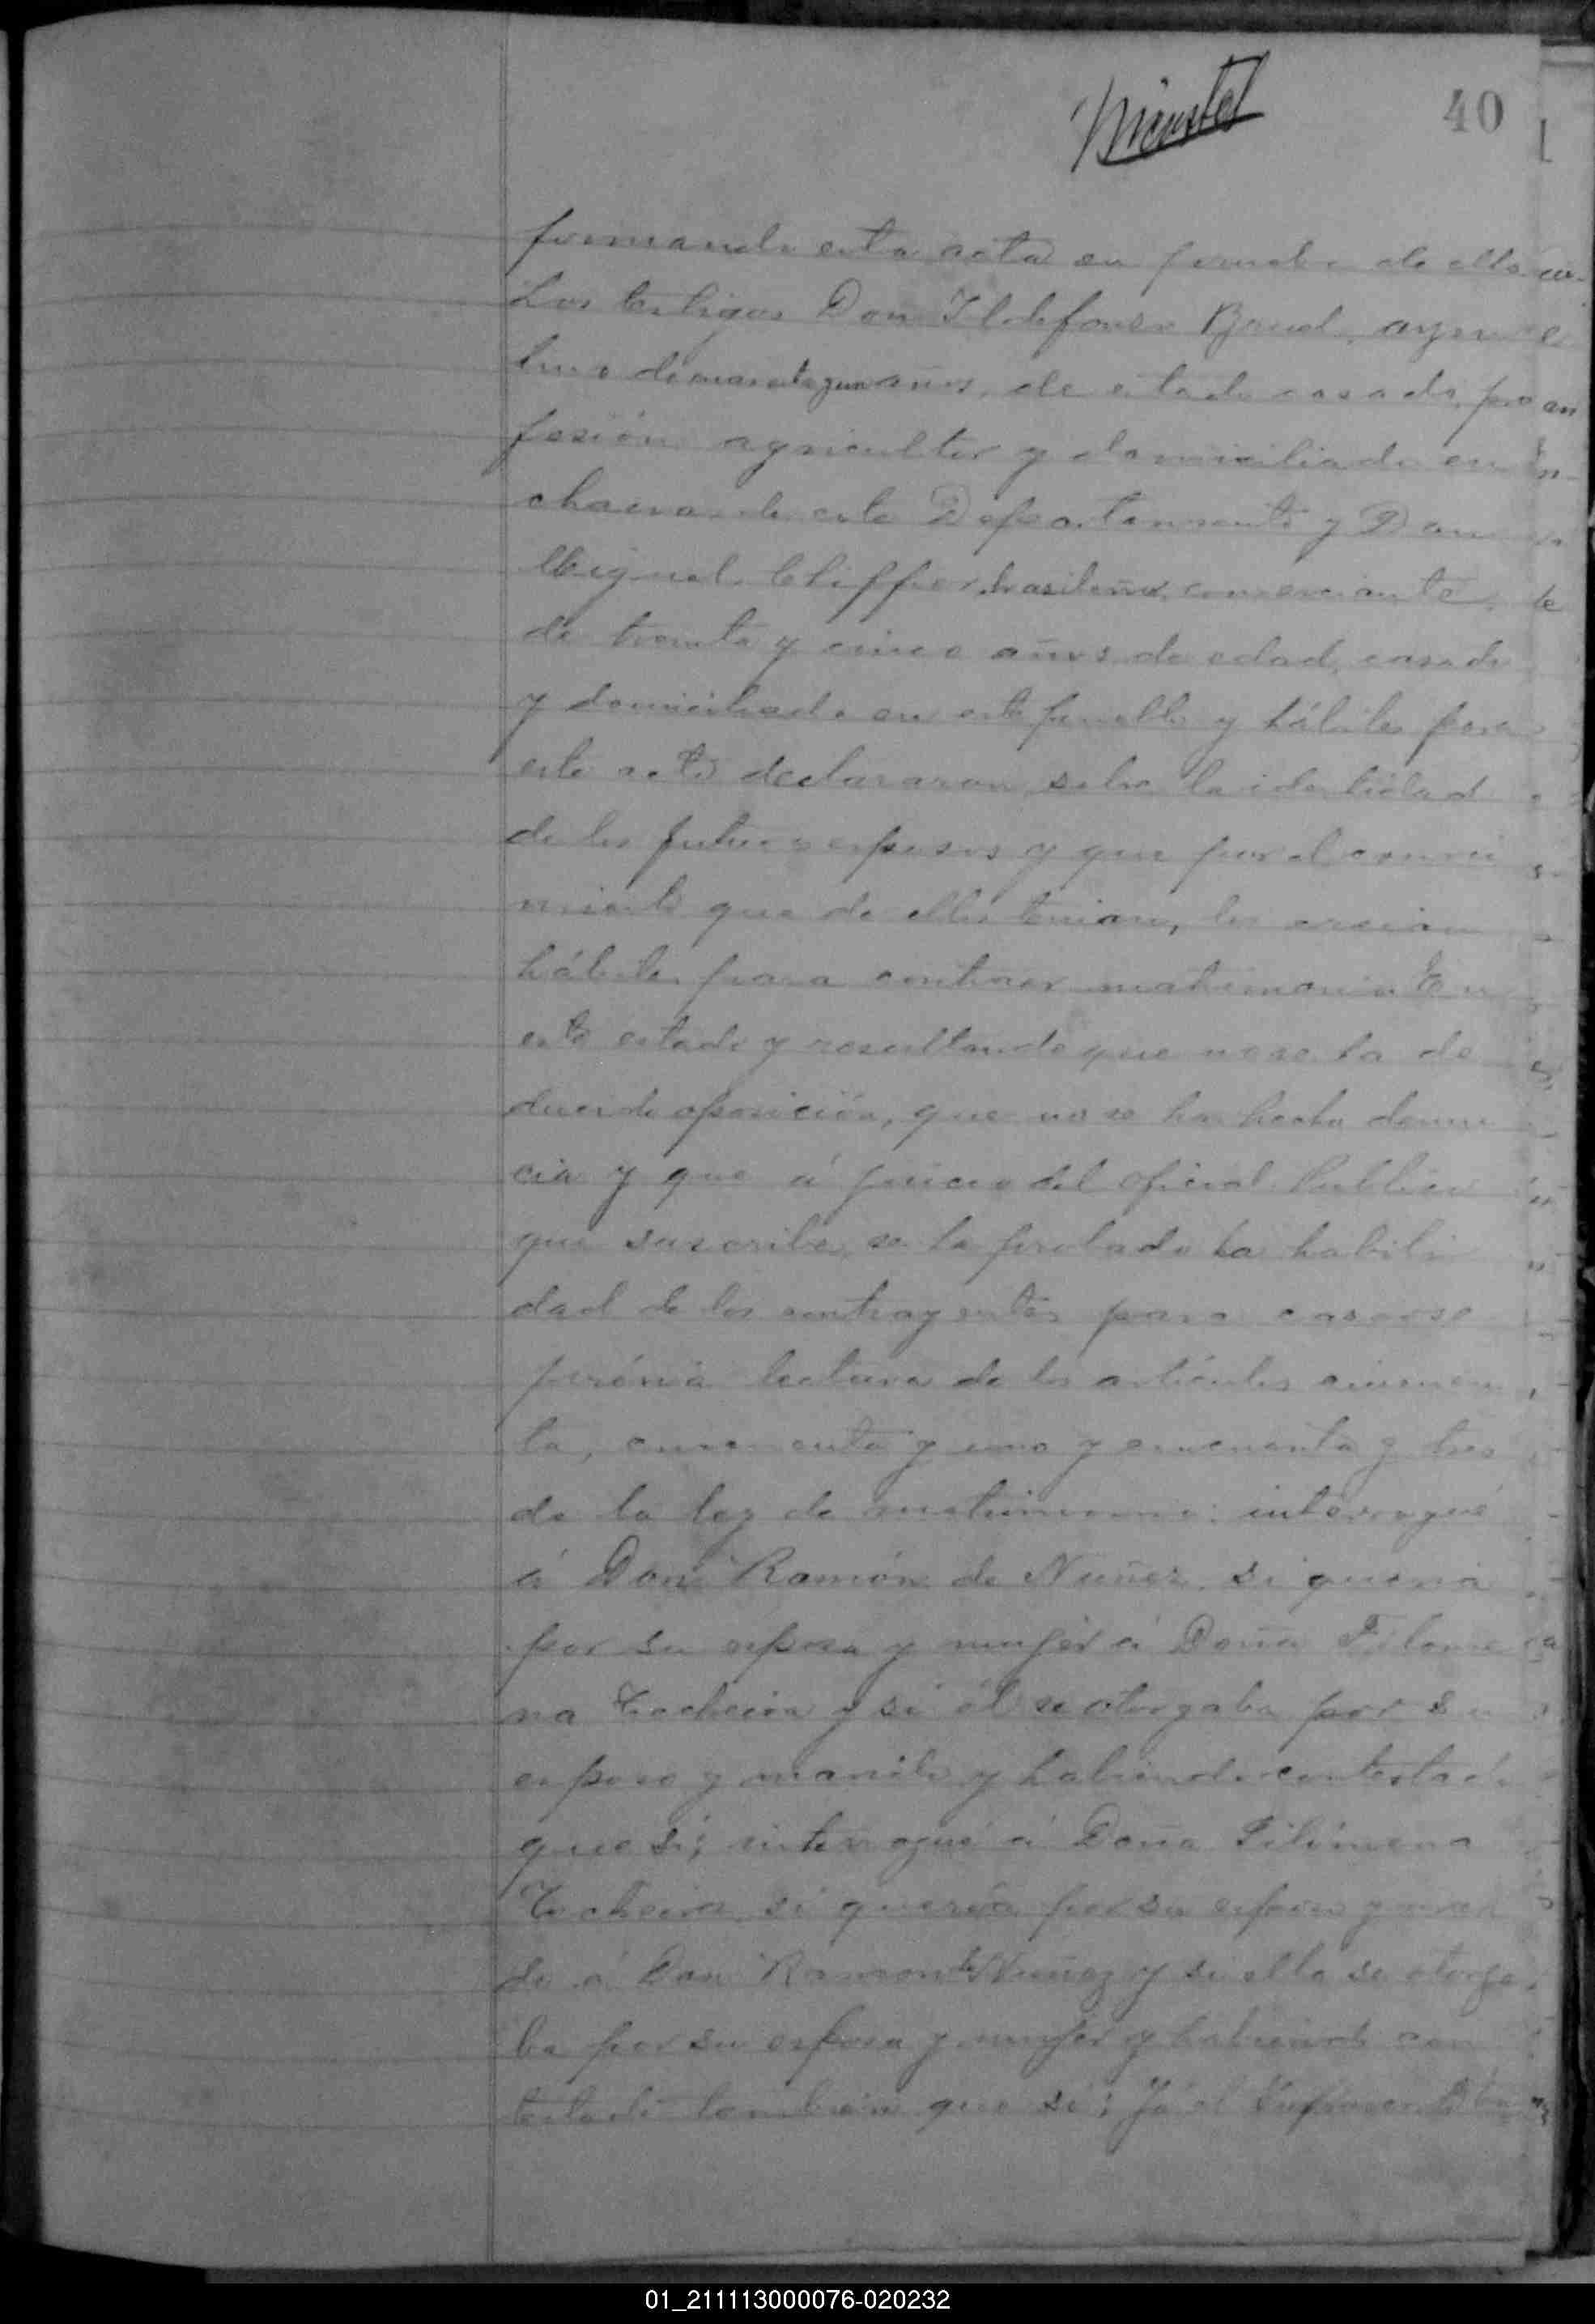 40
firmando esta acta en prueba de ello
Los testigos Don Ildefonso Bruel, argen
tino de cuarenta y un años, de estado casado, pro
fesión agricultor y domiciliado en
chacra de este Departamento y Don
Miguel brasilero, comerciante,
de treinta y cinco años de edad, casado
y domiciliado en este pueblo y hábiles para
este acto declararon sobre la identidad
de los futuros esposos y que por el conoci
miento que de ellos tenian, los creian
hábiles para contraer matrimonio En
este estado y resultando que no se ha de
ducido oposición, que no se ha hecho denun
cia y que á juicio del oficial Publico
que suscribe, se ha probado la habili
dad de los contrayentes para casarse
prévia lectura de los artículos cincuen
ta, cincuenta y uno y cincuenta y tres
de la ley de matrimonio: interrogué
á Don Ramón de Nuñez si queria
por su esposa y mujer á Doña Filome
na Techeira y si él se otorgaba por su
esposo y marido y habiendo contestado
que si; interrogué á Doña Filómena
Techeira si queria por su esposo y mari
do á Don Ramon de Nuñez y si ella se otorga
ba por su esposa y mujer y habiendo con
testado tambien que si; Yo el
01_211113000076-020232